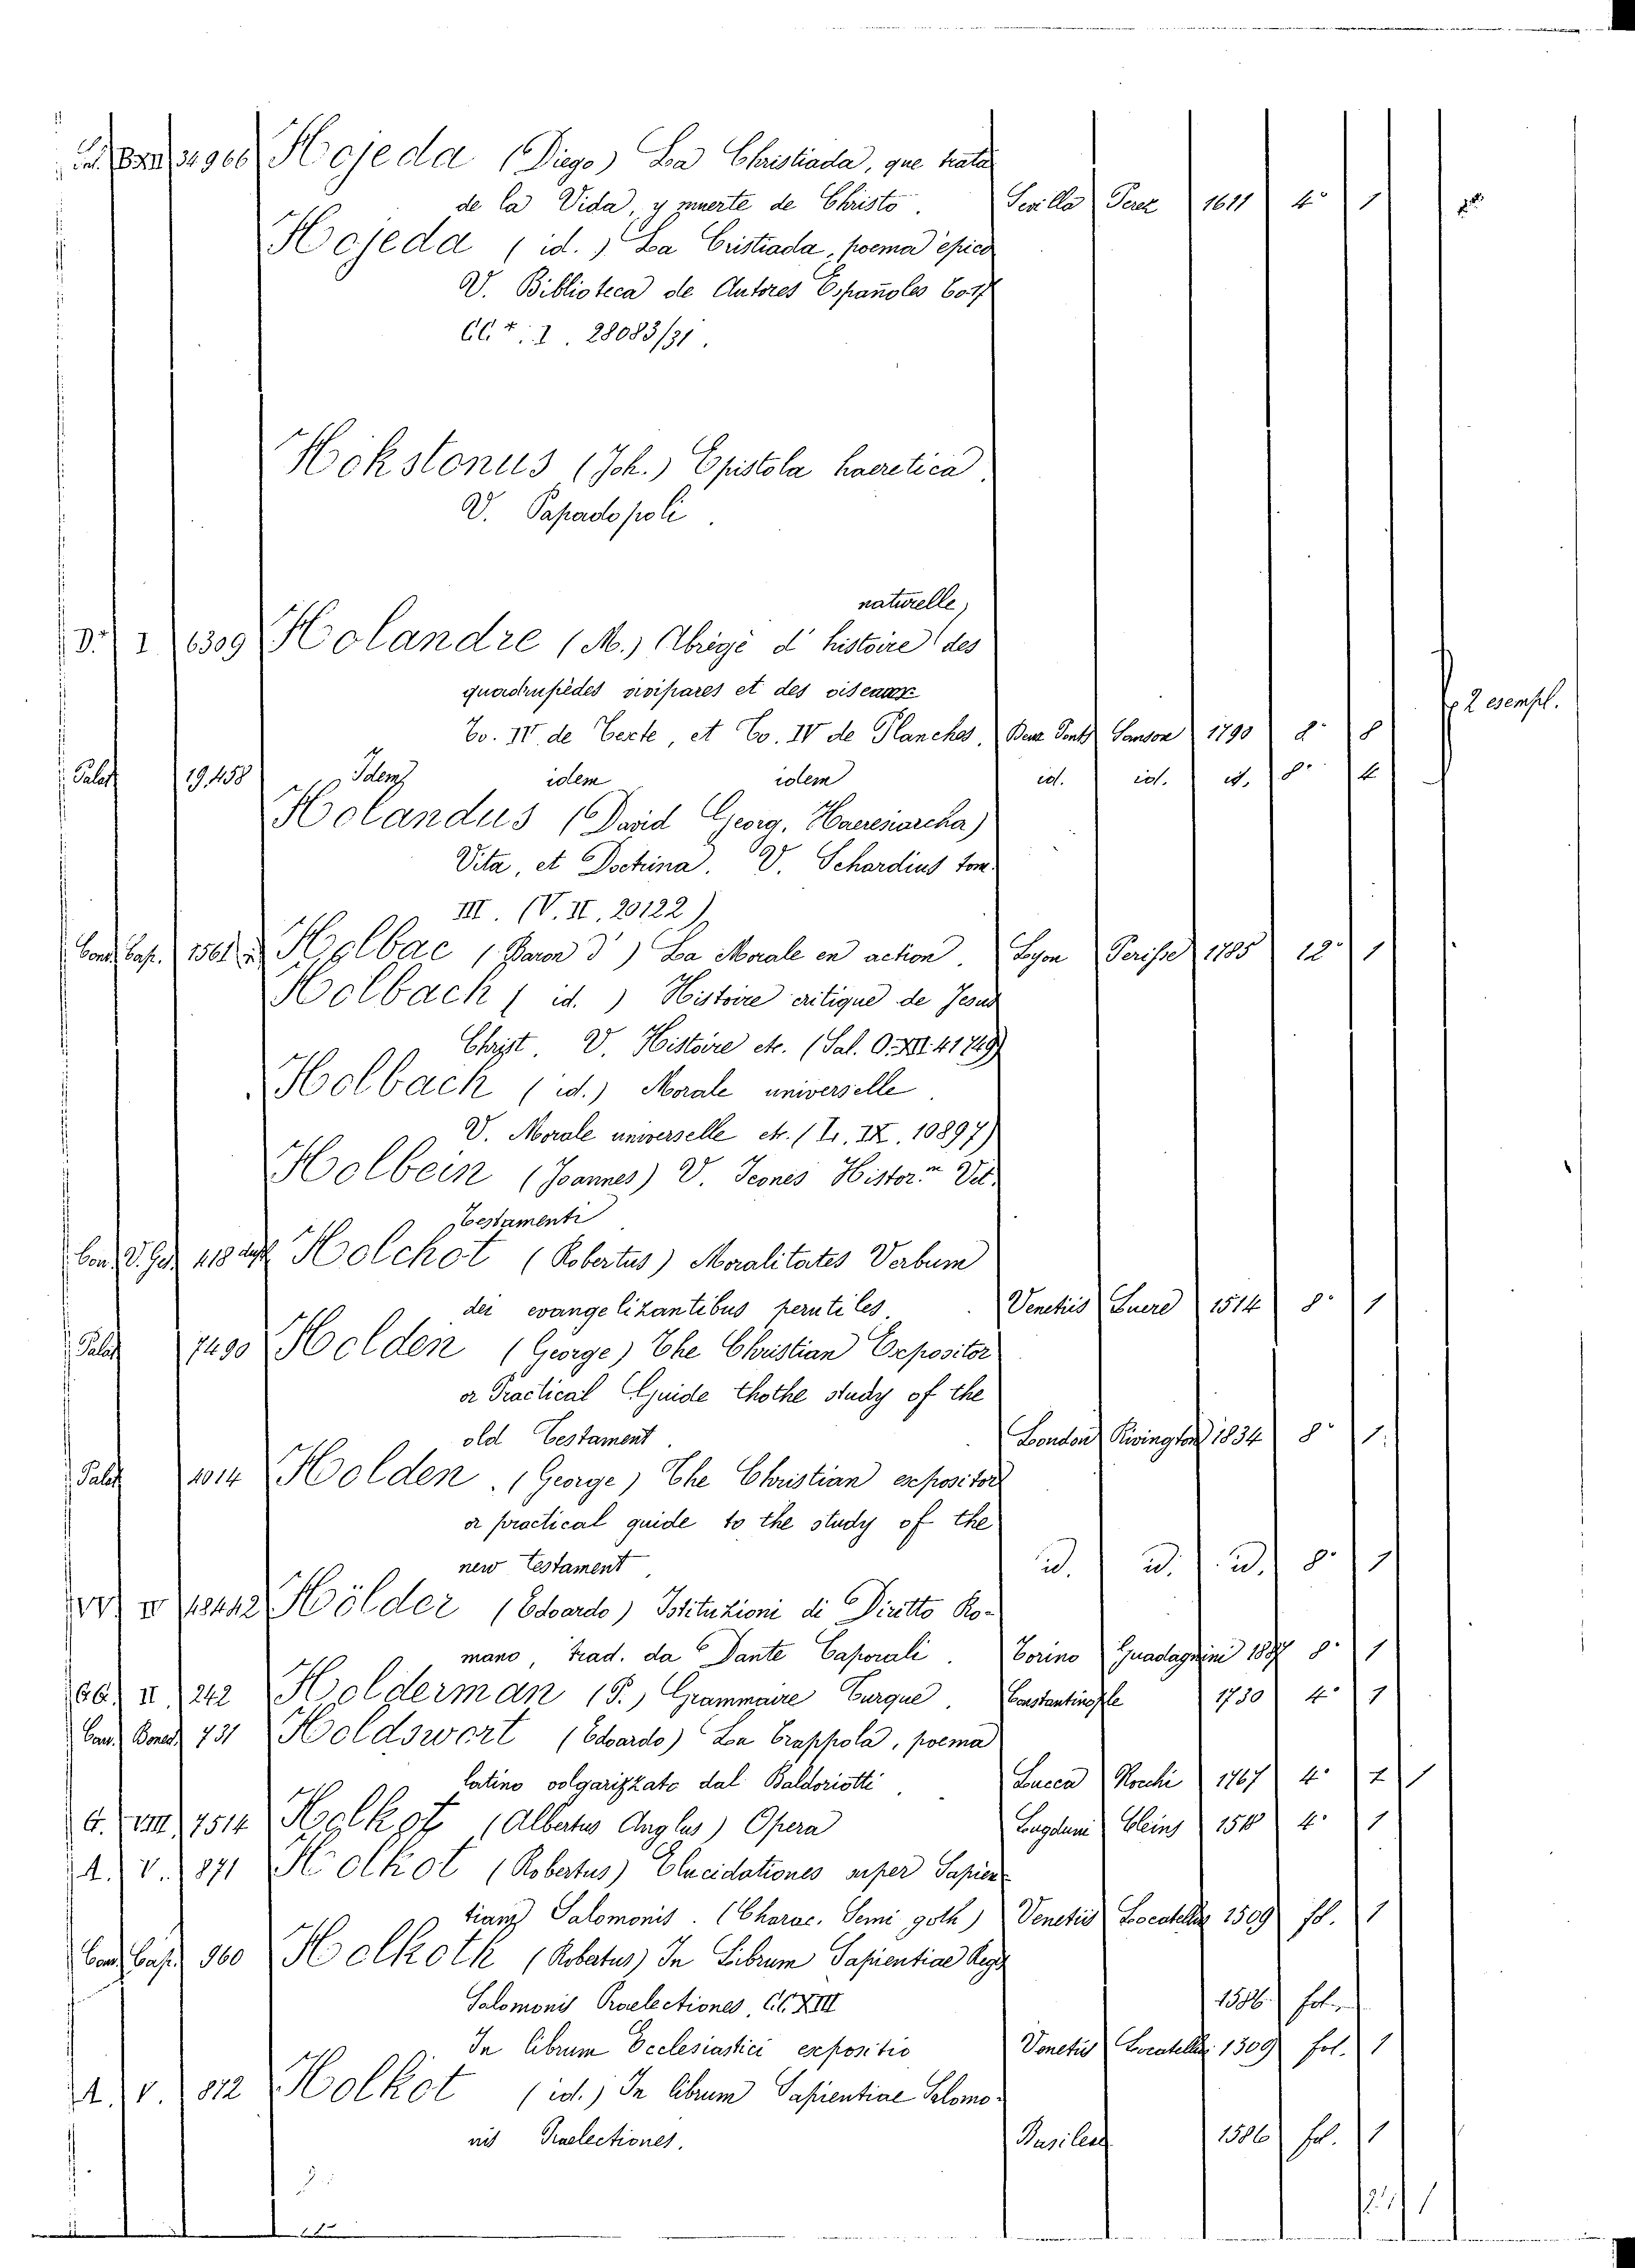 34966 Hojeda (Diego) La Christiada, que trata
de la Vida, y muerte de Christo. Sevilla Perez 1611 4° 1
Hojeda (id.) La Cristiada, poema épico
V. Biblioteca de Autores Españoles
CC. I. 28083/31.
Hökstonus (Joh.) Epistola haeretica.
V. Papadopoli.
naturelle,
D. I 6309 Holandre (M.) Abrégé d'histoire des
quadrupèdes vivipares et des oiseaux
To. IV. de Texte, et To. IV de Planches. Deux Ponts Sanson 1790 8° 8 2 esempl.
Palat 19,458 Idem idem idem id. id. id. 8° 4
Holandus (David Georg. Haeresiarcha)
Vita, et Doctrina. V. Schardius tom.
III. (V. II. 20122)
Con. Cap. 1561 Holbac (Baron d') La Morale en action. Lyon Perisse 1785 12° 1
Holbach (id.) Histoire critique de Jesus
Christ. V. Histoire etc. (Sal. O. XII. 41749)
Holbach (id.) Morale universelle.
V. Morale universelle etr. (L. IX. 10897)
Holbein (Joannes) V. Icones Histor.m Vet.
Testamenti
Con. V. Ges. 418 Holchot (Robertus) Moralitates Verbum
dei evangelizantibus perutiles. Venetiis Luere 1514 8° 1
Palat 7490 Holden (George) The Christian Expositor
or Practical Guide thothe study of the
old Testament. London Rivington 1834 8° 1
Palat 1014 Holden. (George) The Christian expositor
or practical guide to the study of the
new testament. id. id. id. 8° 1
18442 Hölder (Edoardo) Istituzioni di Diritto Ro-
mano, trad. da Dante Caporali. Torino Guadagnini 1887 8° 1
CC. II 242 Holderman (P.) Grammaire Turque. Constantinople 1730 4° 1
Con. Bened. 731 Holdswort (Edoardo) La Trappola, poema
latino volgarizzato dal Baldoriotti. Lucca Rocchi 1767 4° 1
G. VIII 7514 Holkot (Albertus Anglus) Opera Lugduni Cleins 4° 1
A. V. 871 Holkot (Robertus) Elucidationes super Sapien-
tiam Salomonis. (Charac. Semi goth) Venetiis Locatellus 1509 fol. 1
Con. Cap. 960 Holkoth (Robertus) In Librum Sapientiae Regis
Salomonis Praelectiones CCXIII 1586 fol.
In librum Ecclesiastici expositio Venetiis Locatellus 1509 fol. 1
A. V. 872 Holkot (id.) In librum Sapientiae Salomo-
nis Praelectiones. Basileae 1586 fol. 1